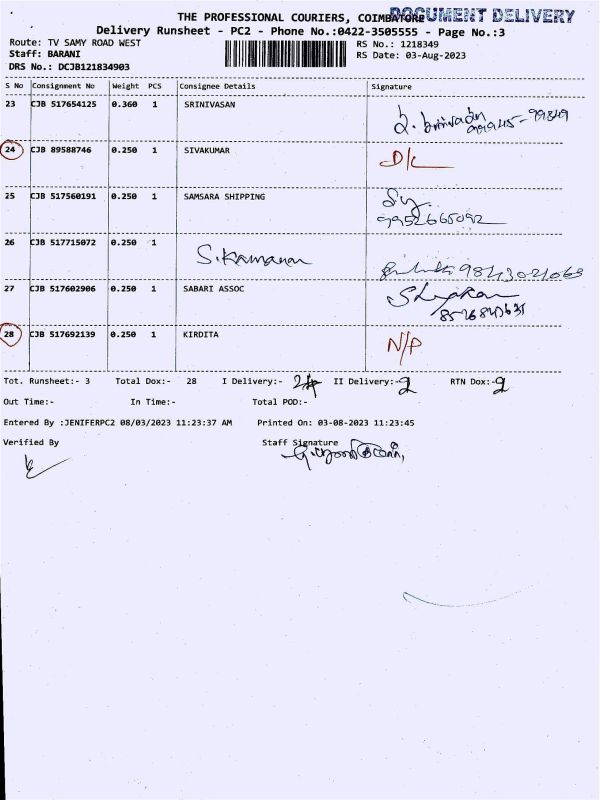 THE PROFESSIONAL COURIERS, COIMBATORE
DOCUMENT DELIVERY
Delivery Runsheet - PC2 - Phone No.:0422-3505555 - Page No.:3
Route: TV SAMY ROAD WEST RS No.: 1218349
Staff: BARANI RS Date: 03-Aug-2023
DRS No.: DCJB121834903
S No Consignment No Weight PCS Consignee Details Signature
23 CJB 517654125 0.360 1 SRINIVASAN
24 CJB 89588746 0.250 1 SIVAKUMAR D/L
25 CJB 517560191 0.250 1 SAMSARA SHIPPING
9952665092
26 CJB 517715072 0.250 1
27 CJB 517602906 0.250 1 SABARI ASSOC
28 CJB 517692139 0.250 1 KIRDITA N/P
Tot. Runsheet:- 3 Total Dox:- 28 I Delivery:- II Delivery:- 2 RTN Dox:- 2
Out Time:- In Time:- Total POD:-
Entered By :JENIFERPC2 08/03/2023 11:23:37 AM Printed On: 03-08-2023 11:23:45
Verified By Staff Signature